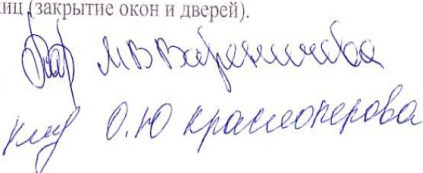 (закрытие окон и дверей).
М В Вареничева
О.Ю Красноперова